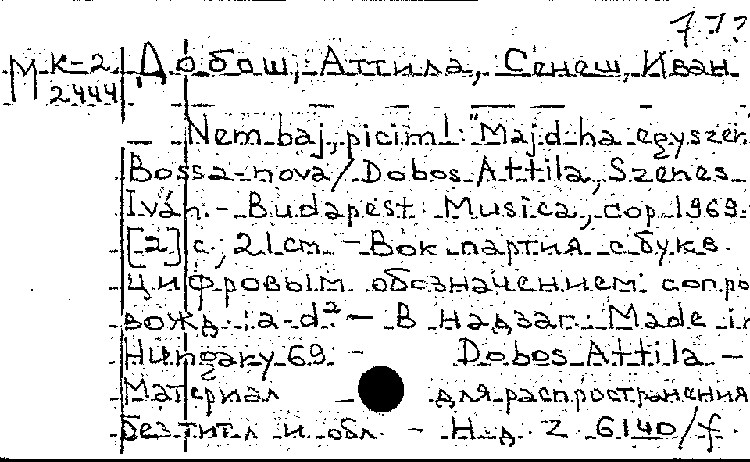 777
М К-2 Добош, Аттила, Сенеш, Иван
2444
Nem baj, picim! "Majd ha egyszer
Bossa-nova / Dobos Attila, Szenes
Iván. - Budapest: Musica, cop. 1969.
[2] с.; 21 cm. - Вок. партия с букв.
цифровым обозначением сопро
вожд.: a-d² - В надзаг.: Made in
Hungary 69. - Dobos Attila -
Материал - для распространения
без титл. и обл. - Н.д. Z 6140/f.